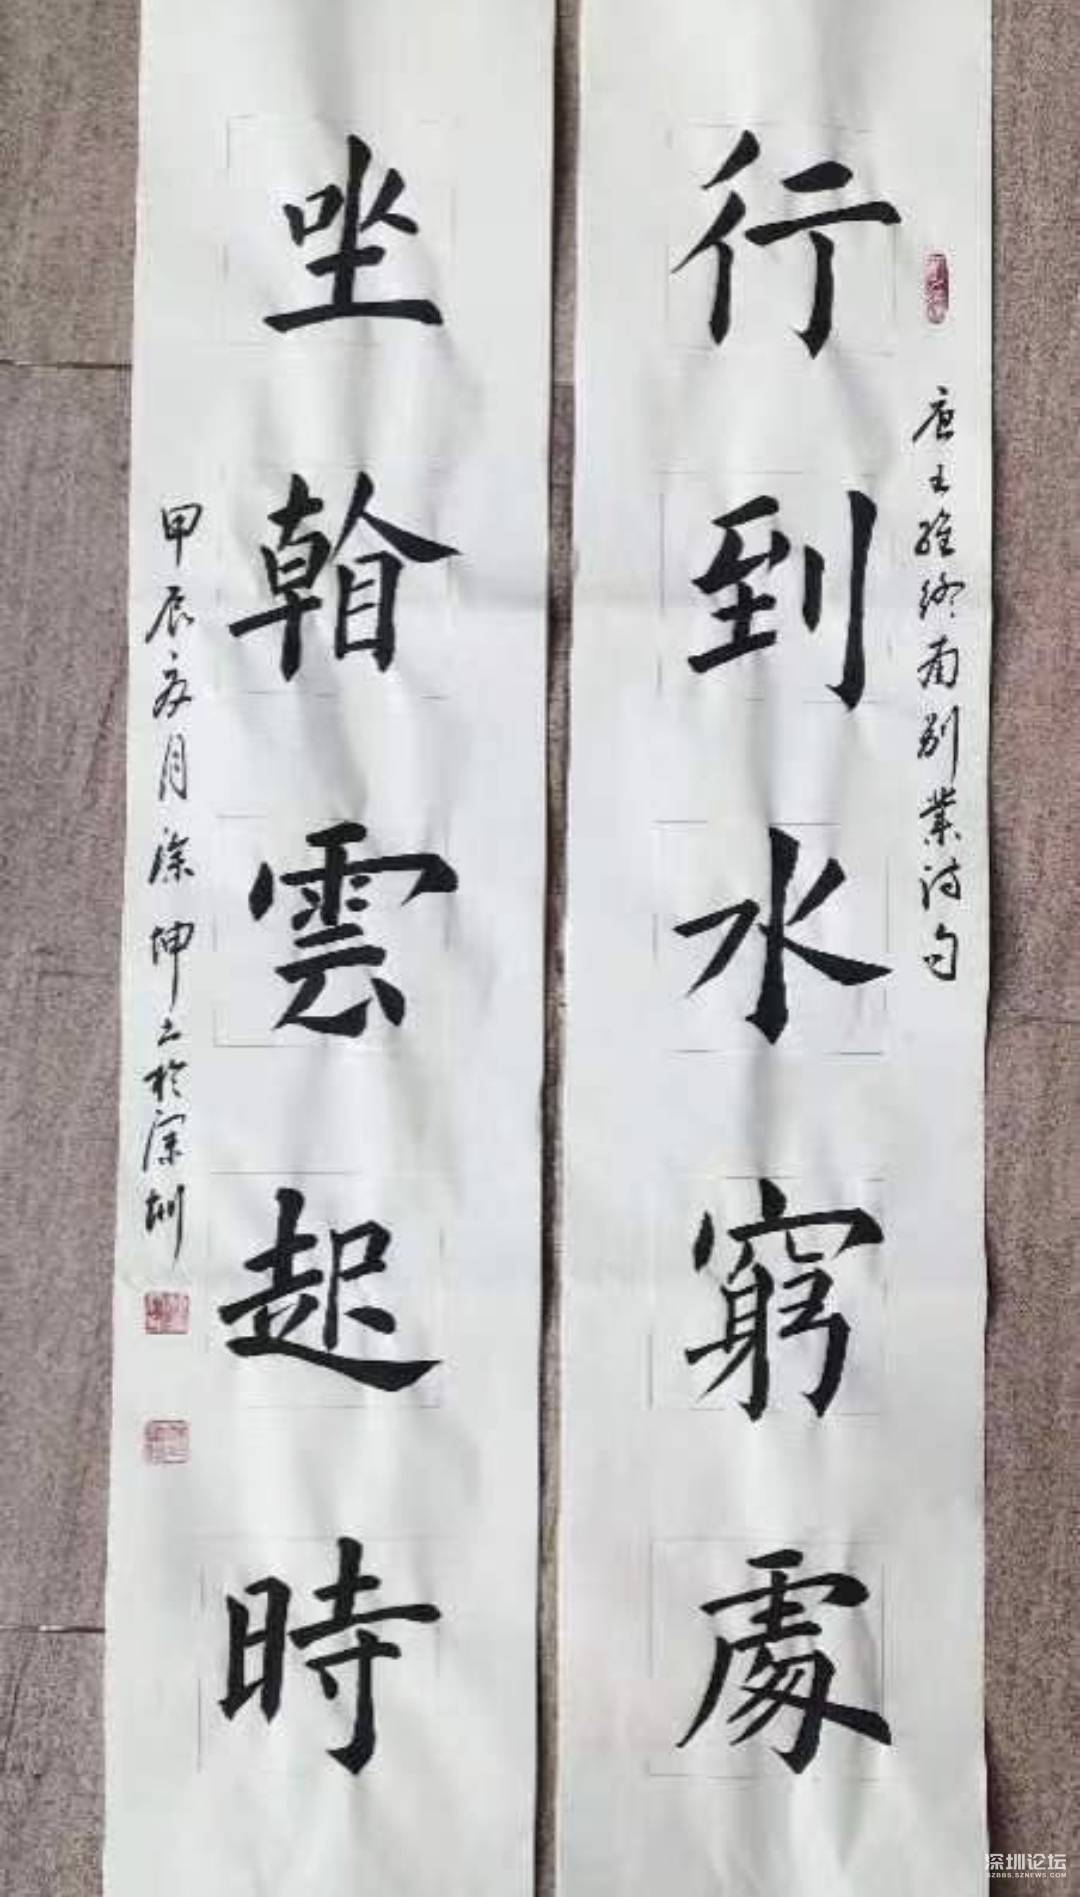 行到水窮處
唐王維終南別業詩句
坐看雲起時
甲辰夏月涂坤书於深圳
深圳论坛
SZBBS.SZNEWS.COM